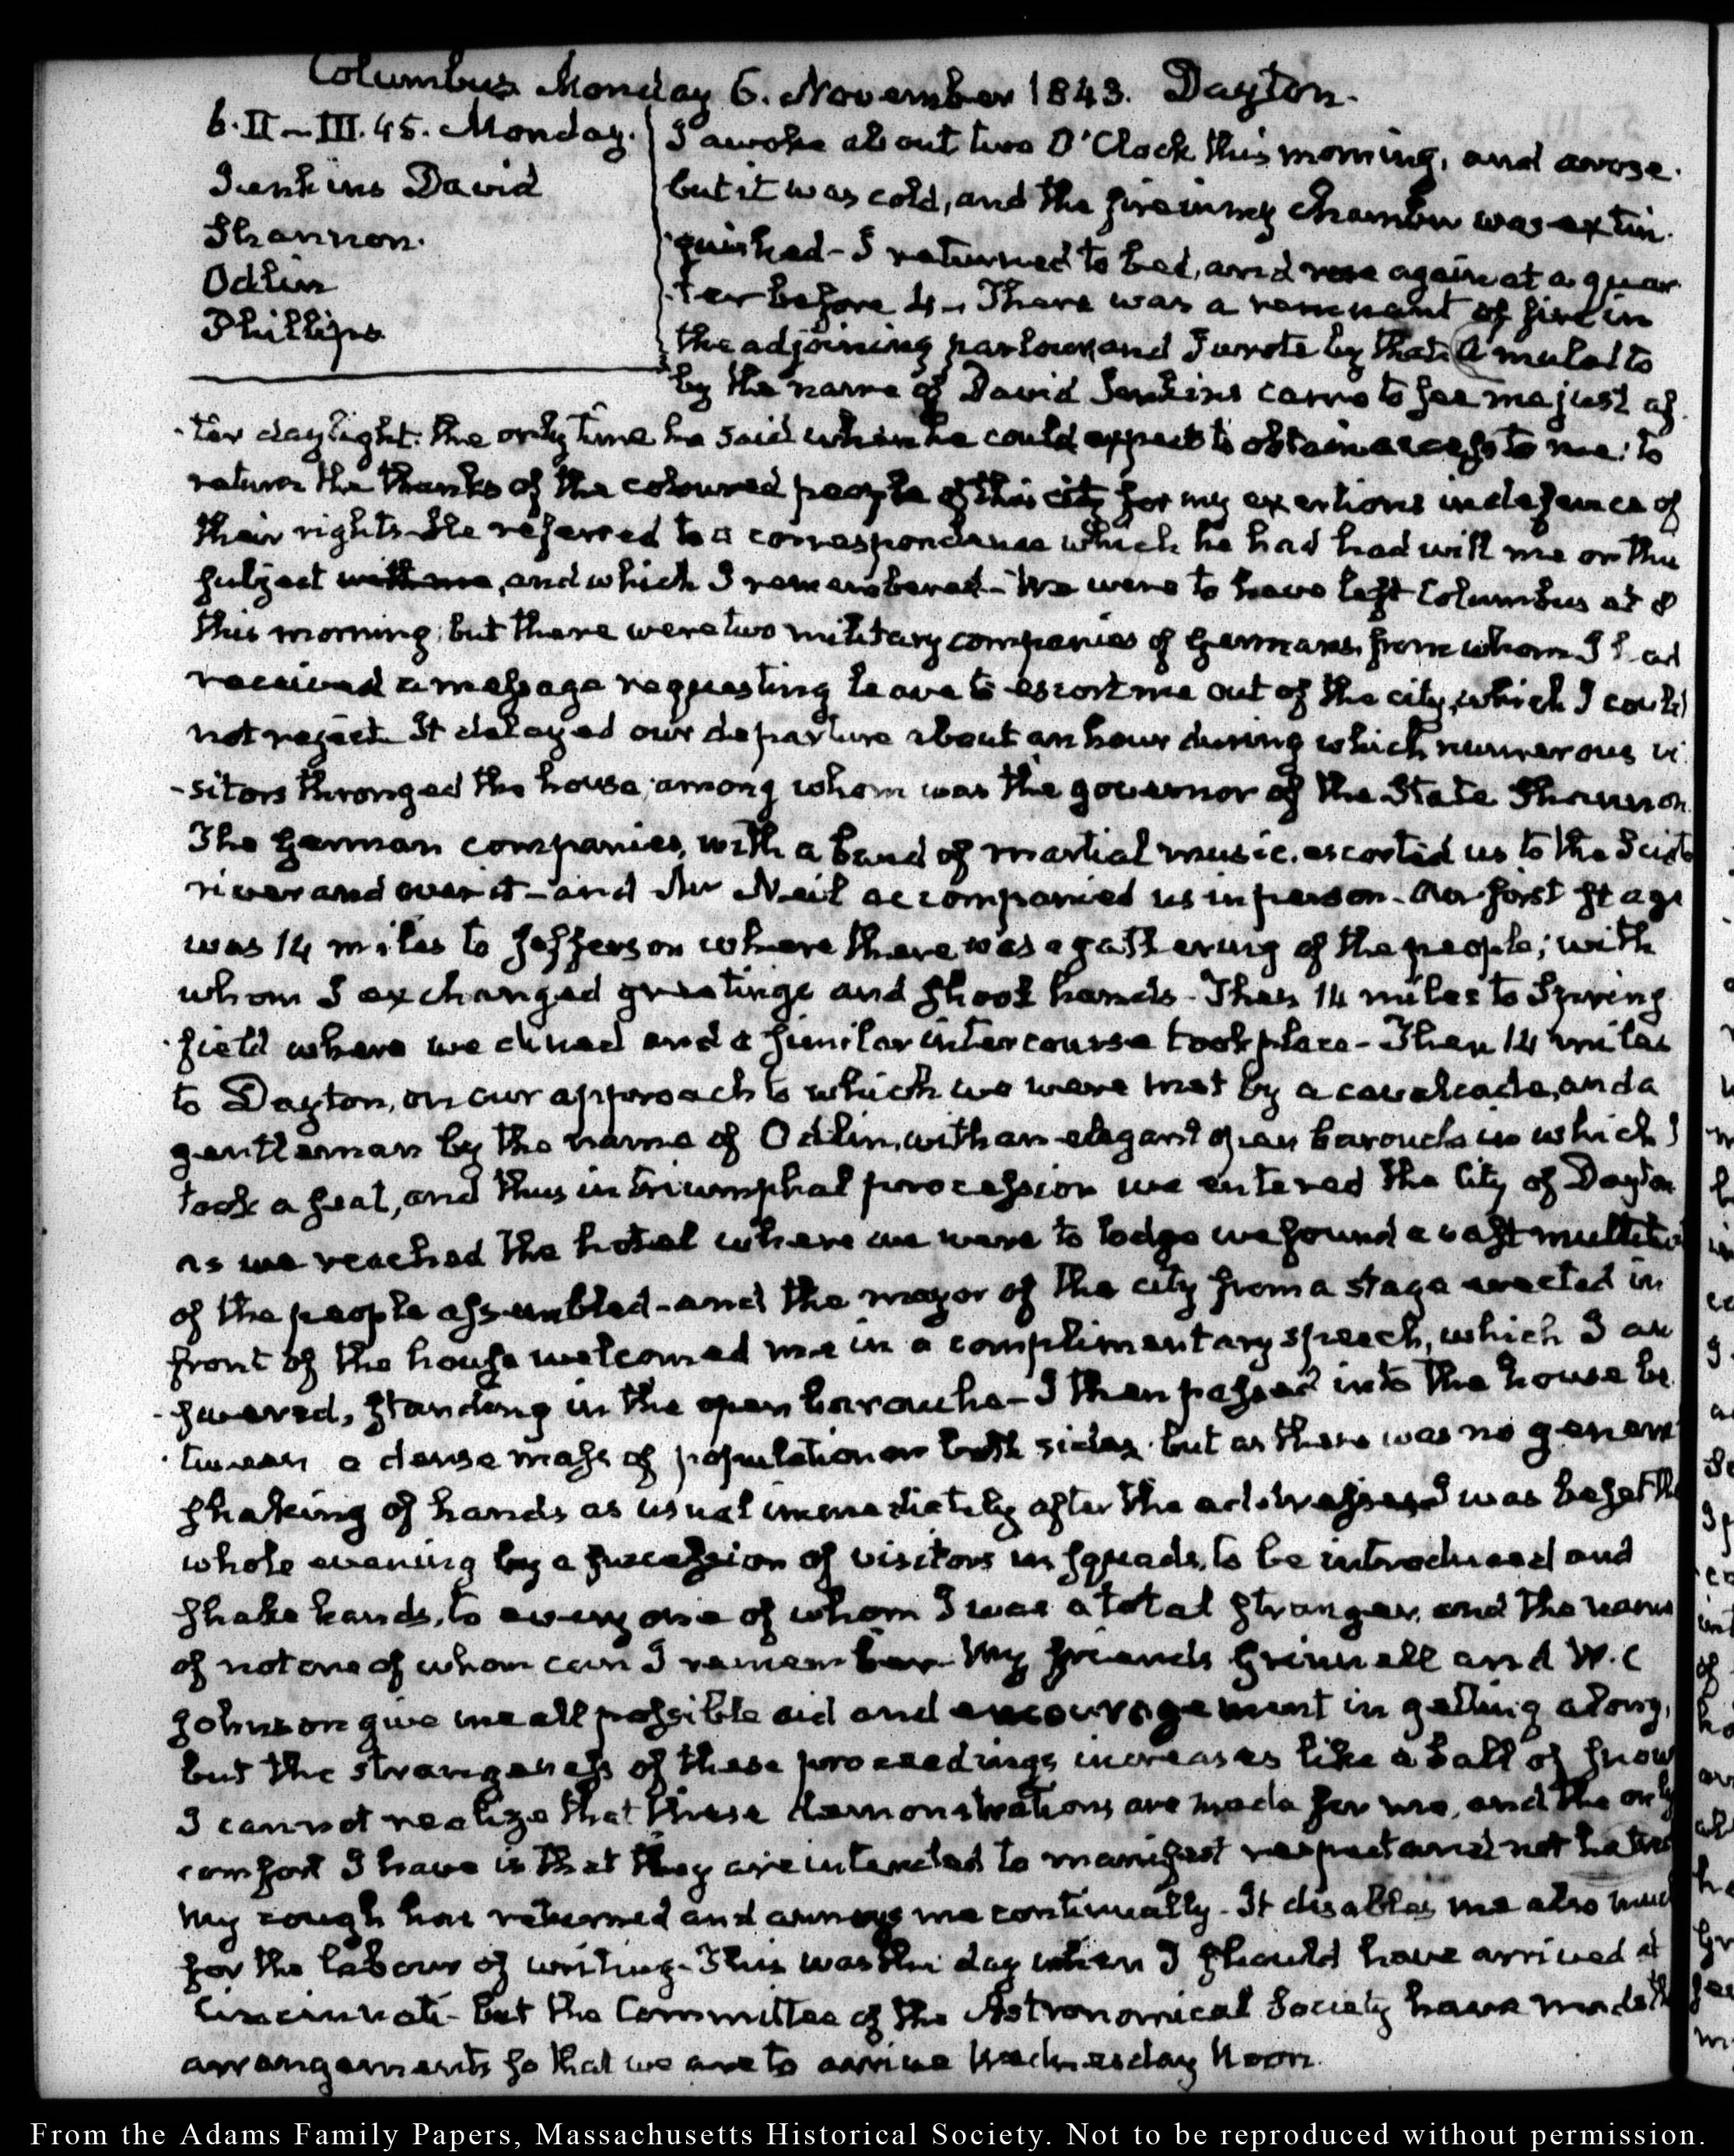 Columbus Monday 6. November 1843. Dayton.
6. II–III.45. Monday.
Jenkins David
Shannon.
Odlin
Phillips
I awoke about two O'Clock this morning, and arose.
but it was cold, and the fire in my chamber was extin
guished - I returned to bed, and rose again at a quar
ter before 4 - There was a remnant of fire in
the adjoining parlour and I wrote by that. A mulatto
by the name of David Jenkins came to see me just af
ter daylight: the only time he said when he could expect to obtain access to me: to
return the thanks of the coloured people of this city for my exertions in defence of
their rights. He referred to a correspondence which he had had with me on this
subject with me, and which I remembered - We were to have left Columbus at 8
this morning; but there were two military companies of Germans, from whom I had
received a message requesting leave to escort me out of the city, which I could
not reject. It delayed our departure about an hour during which numerous vi
-sitors thronged the house; among whom was the governor of the State Shannon
The German companies, with a band of martial music, escorted us to the Sciot
river and over it - and Mr Neil accompanied us in person. Our first stage
was 14 miles to Jefferson where there was a gathering of the people; with
whom I exchanged greetings and shook hands - Then 14 miles to Spring
field where we dined and a similar intercourse took place - Then 14 miles
to Dayton, on our approach to which we were met by a cavalcade, and a
gentleman by the name of Odlin, with an elegant open barouche in which I
took a seat, and thus in triumphal procession we entered the City of Dayton
as we reached the hotel where we were to lodge we found a vast multitu
of the people assembled - and the mayor of the city from a stage erected in
front of the house welcomed me in a complimentary speech, which I an
-swered, standing in the open barouche - I then passed into the house be
tween a dense mass of population on both sides. but as there was no general
shaking of hands as usual immediately after the addresses I was beset the
whole evening by a succession of visitors in squads, to be introduced and
shake hands, to every one of whom I was a total stranger, and the name
of not one of whom can I remember. My friends Grinnell and W. C
Johnson give me all possible aid and encouragement in getting along,
but the strangeness of these proceedings increases like a ball of snow
I cannot realize that these demonstrations are made for me, and the only
comfort I have is that they are intended to manifest respect and not hatred
My cough has returned and annoys me continually - It disables me also much
for the labour of writing - This was the day when I should have arrived at
Cincinnati - but the Committee of the Astronomical Society have made th
arrangements so that we are to arrive Wednesday Noon.
From the Adams Family Papers, Massachusetts Historical Society. Not to be reproduced without permission.